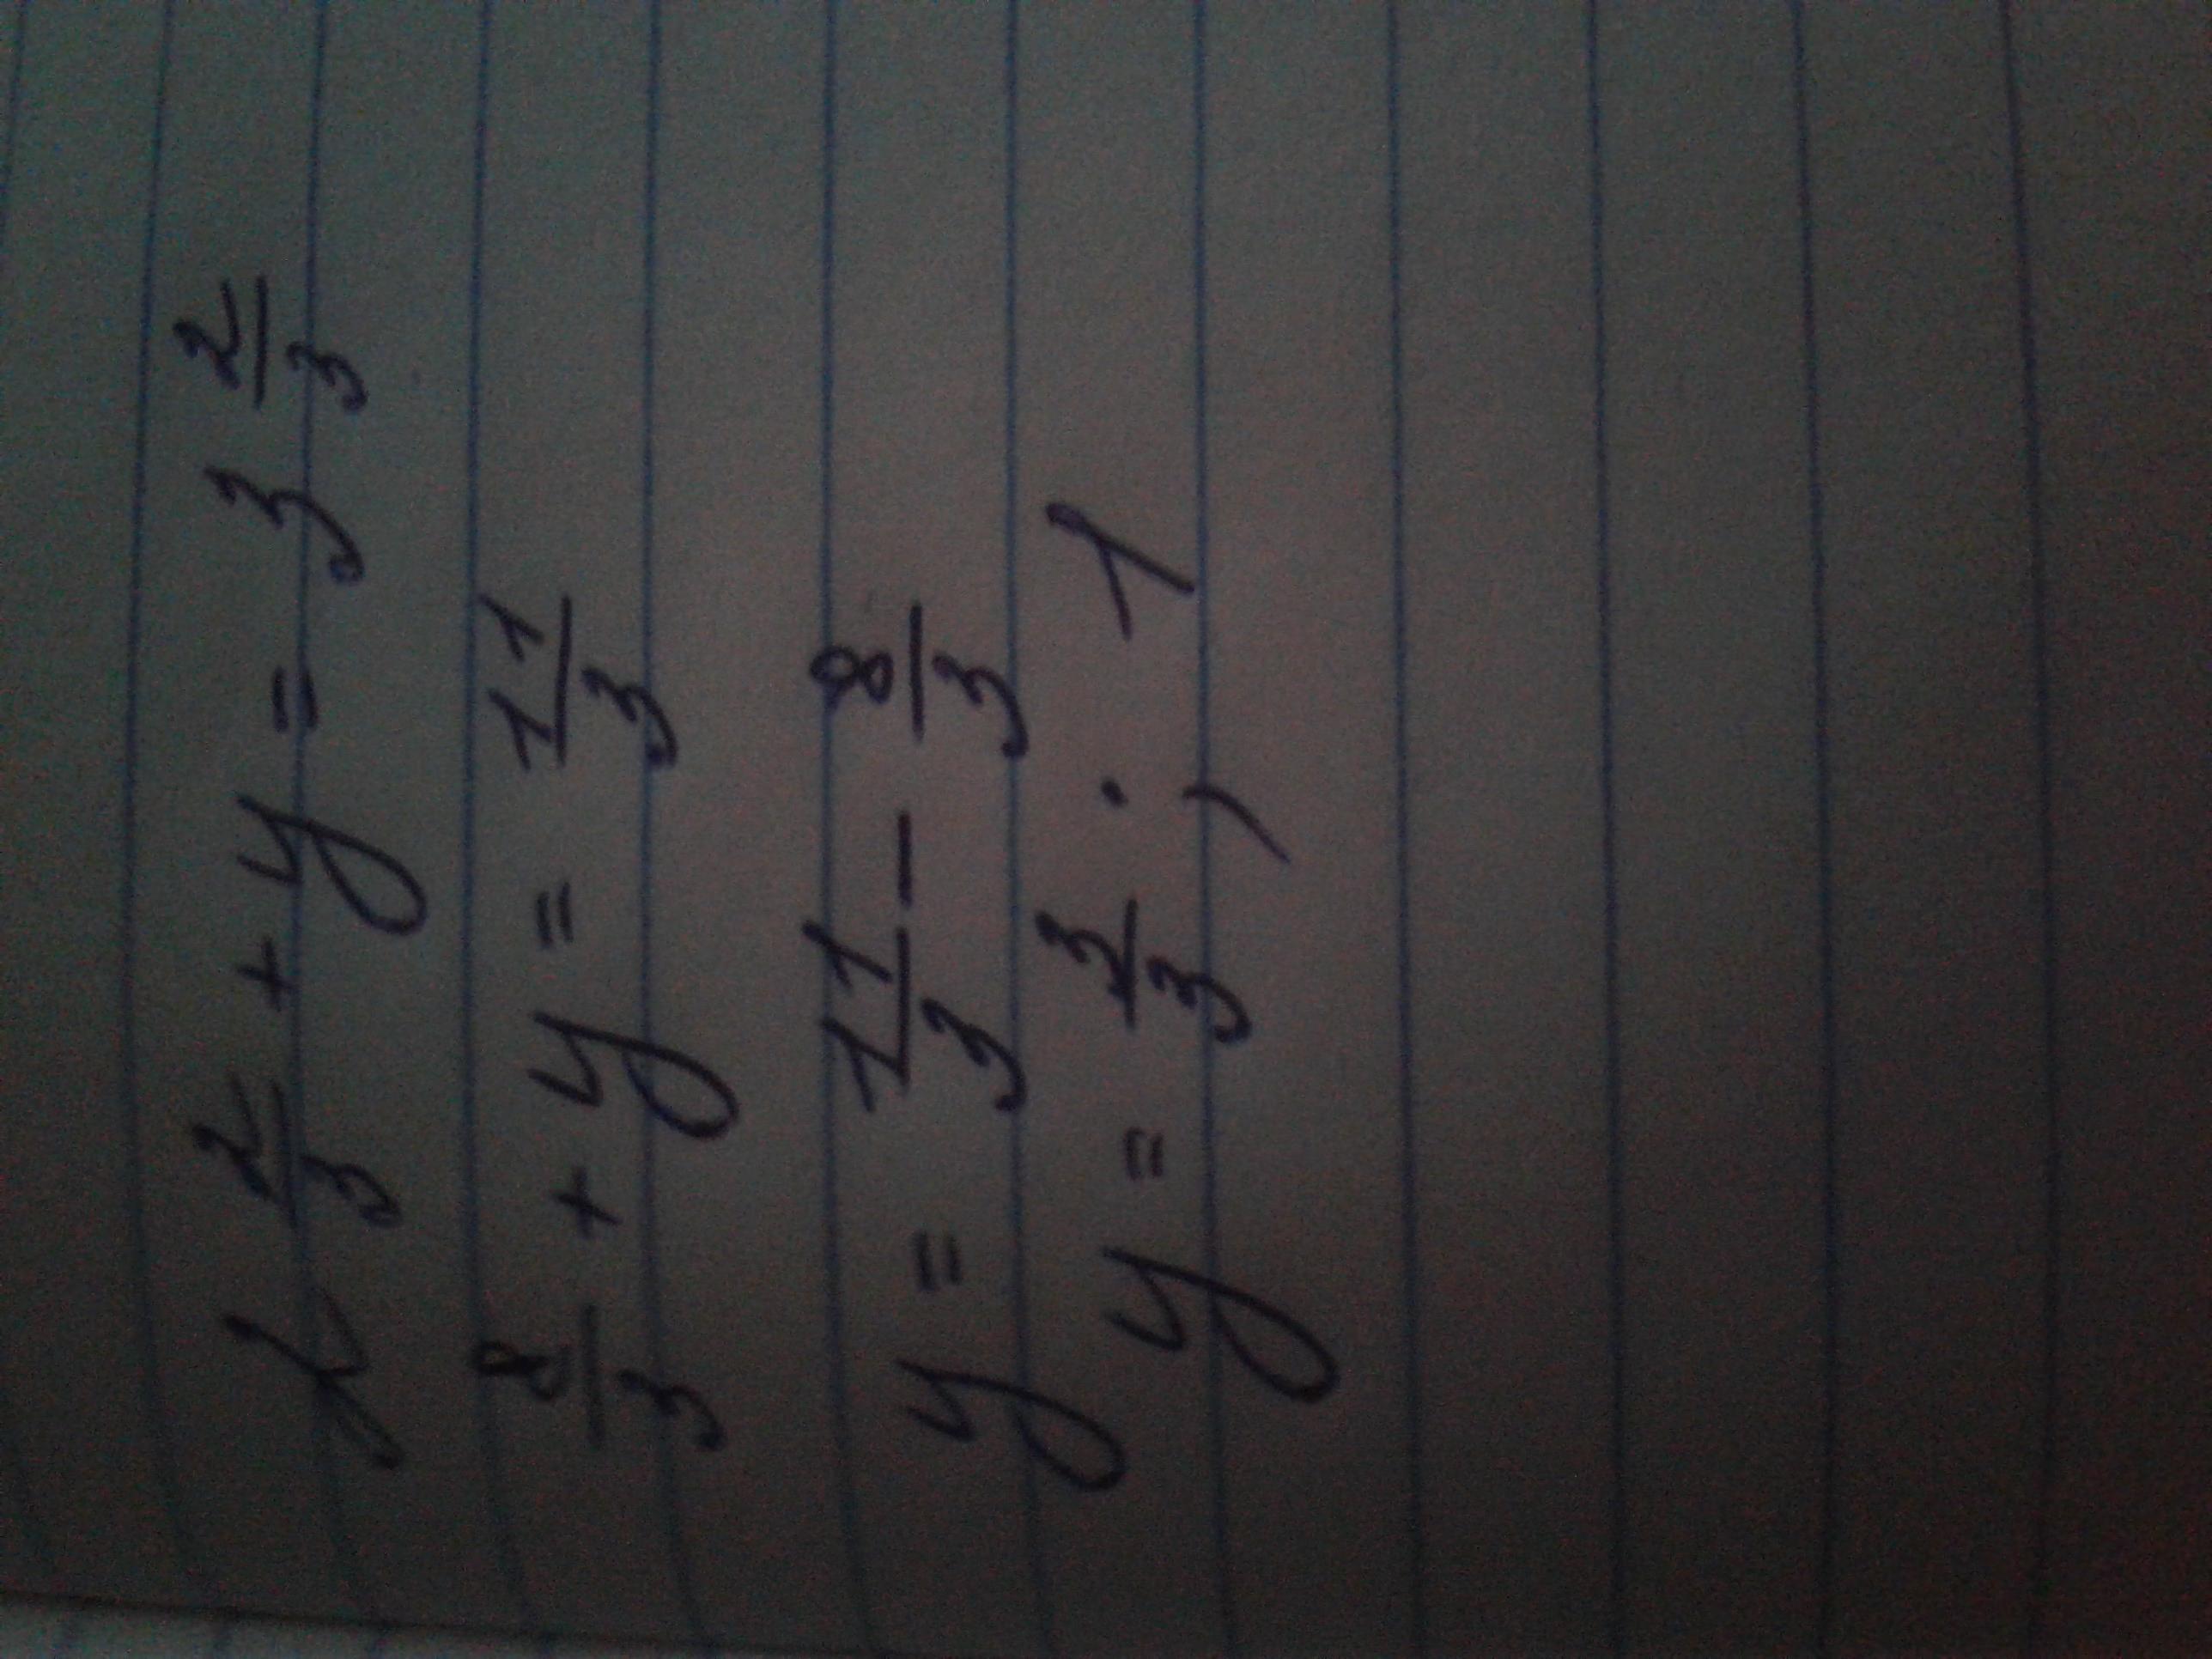 2 2/3 + y = 3 2/3
8/3 + y = 11/3
y = 11/3 - 8/3
y = 3/3 ; 1